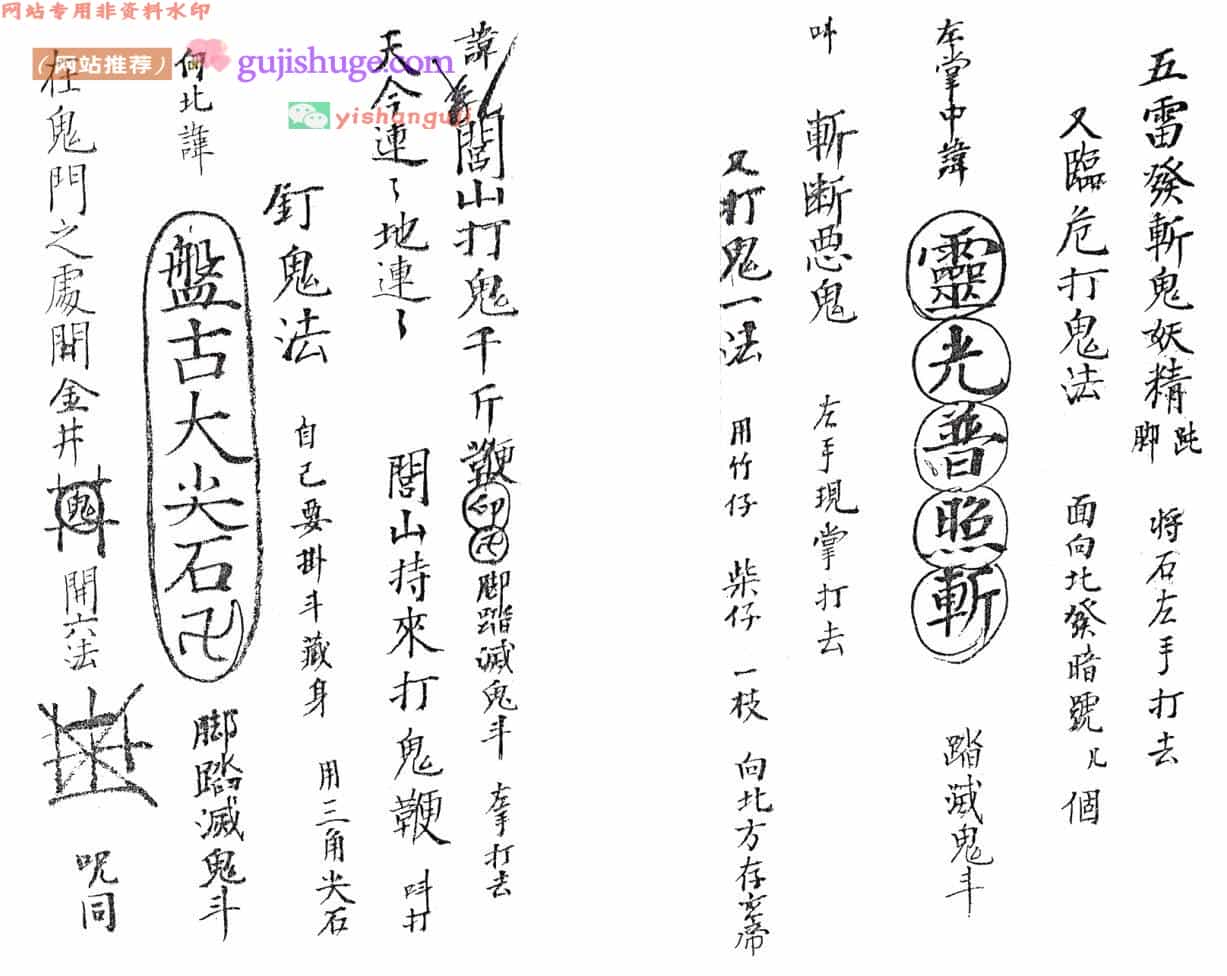 网站专用非资料水印
(网站推荐)
gujishuge.com
yishanguji
五雷發斬鬼妖精 脚 將石左手打去
又臨危打鬼法 面向北發暗號 個
左掌中諱 靈光普照斬 踏滅鬼斗
叫 斬断恶鬼 左手現掌打去
又打鬼一法 用竹仔 柴仔 一枝 向北方存帝
諱 閭山打鬼千斤鞭 印卍 脚踏滅鬼斗 左手打去
天令連〻地連〻 閭山持來打鬼鞭 叫打
釘鬼法 自己要掛斗藏身 用三角尖石
向北諱 盤古大尖石卍 脚踏滅鬼斗
在鬼門之處開金井 鬼 開六法 呪同